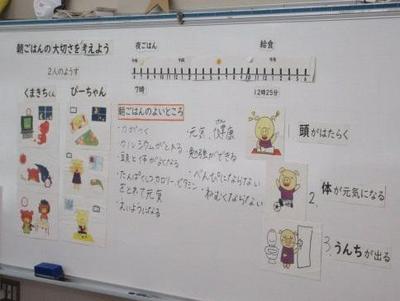 朝ごはんの大切さを考えよう
2人のようす
くまきちくん
ぴーちゃん
夜ごはん
給食
7時
12時25分
朝ごはんのよいところ
・力がつく
・カルシウムがとれる
・頭と体がよくなる
・たんぱくしつ カロリー ビタミン
をとれて元気
・元気、健康
・勉強ができる
・べんぴにならない
・ねむくならない
頭がはたらく
2.
体が元気になる
3.
うんちが出る